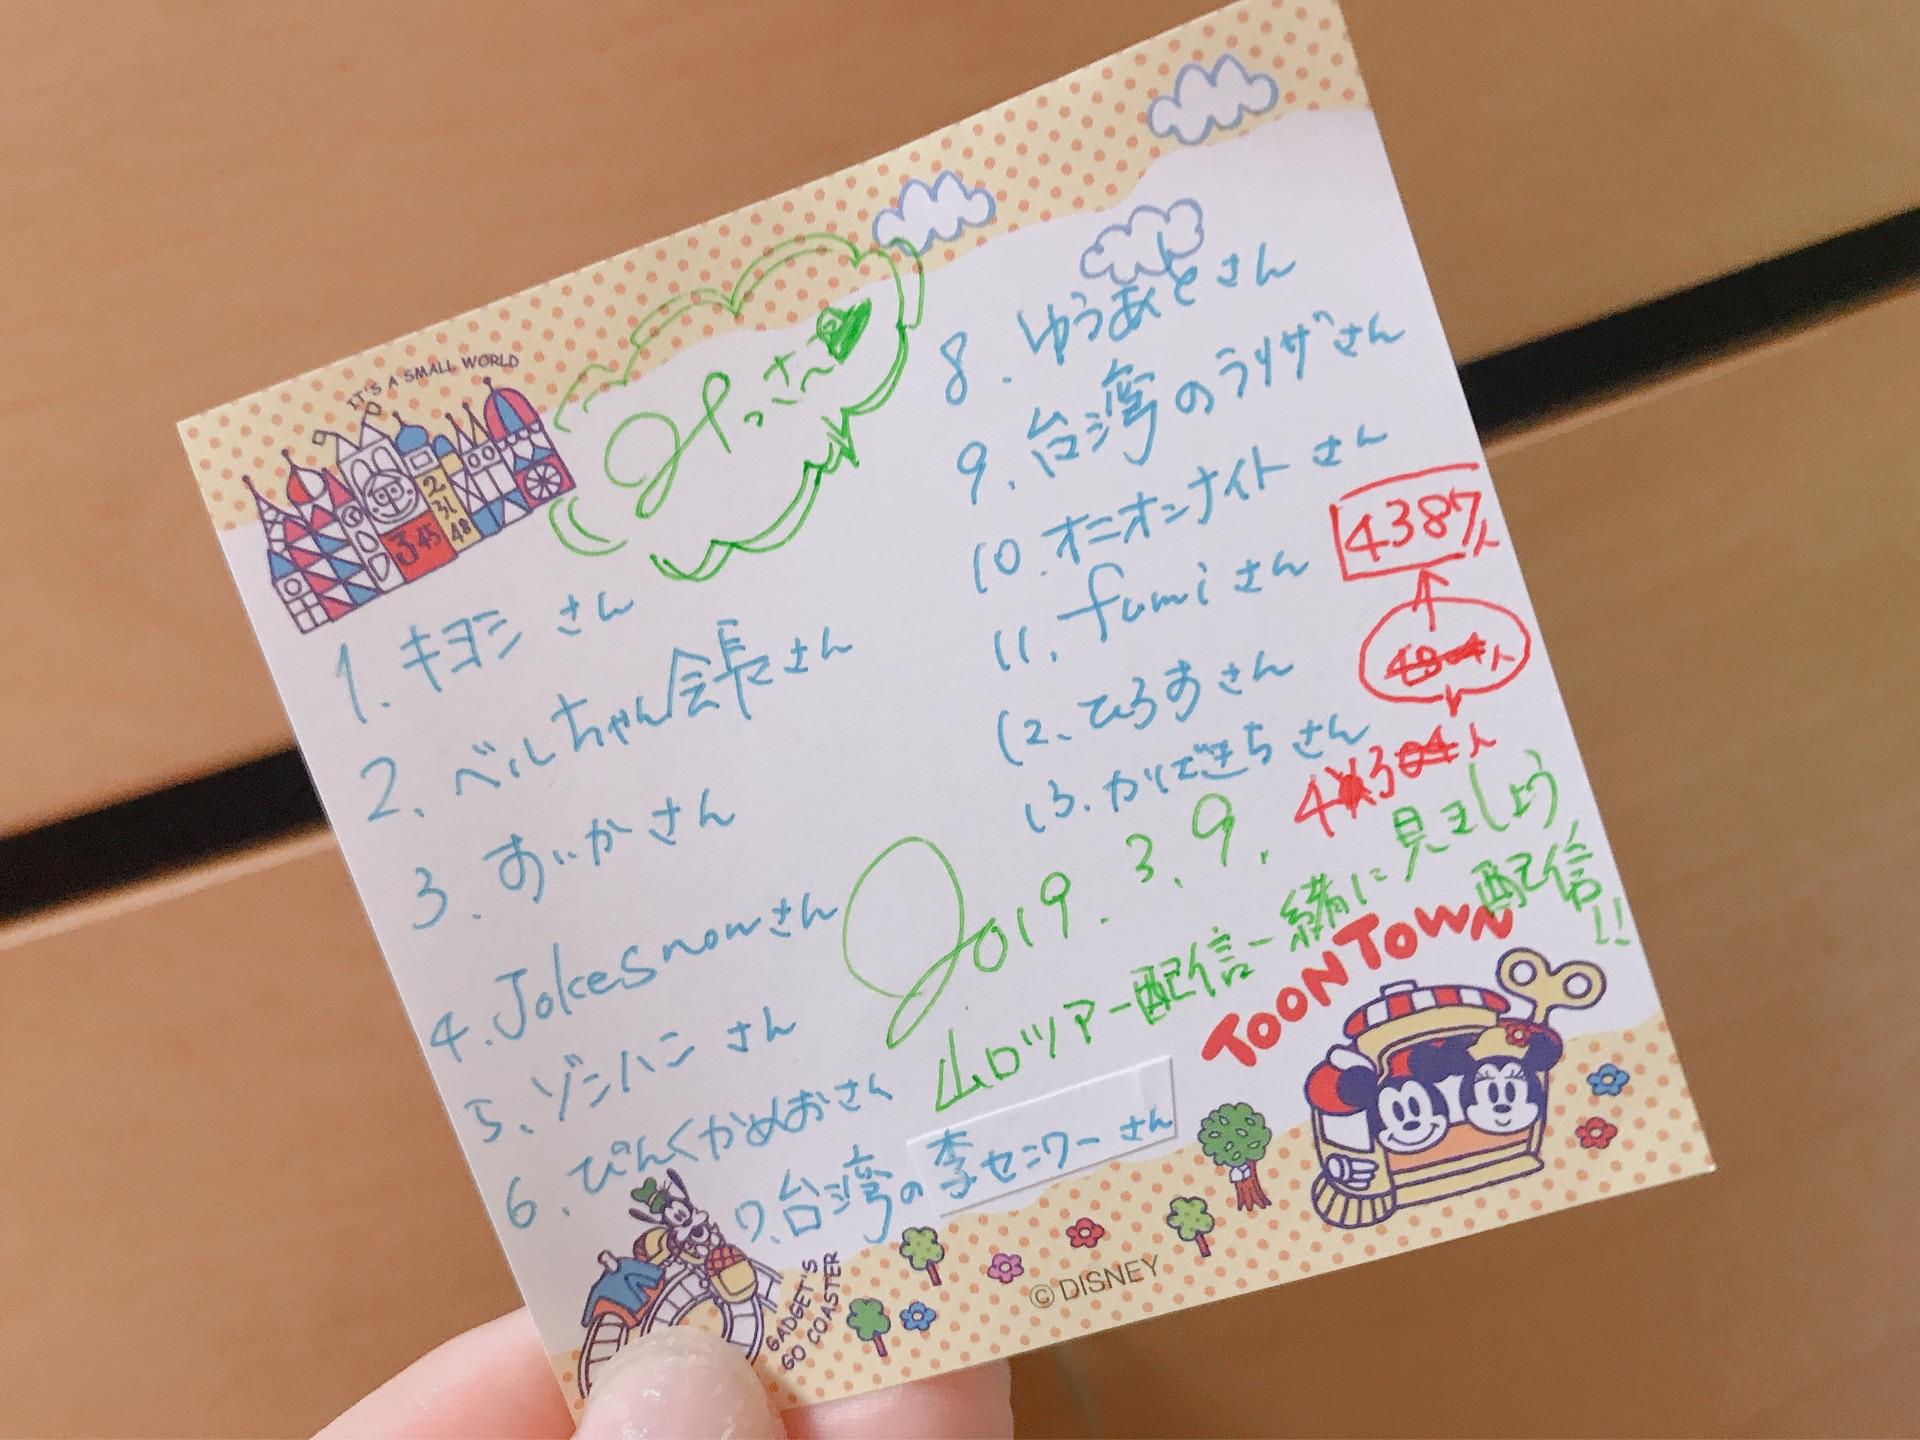 IT'S A SMALL WORLD
2
31
48
3 45
みっさー
1. キヨシ さん
2. ベルちゃん会長さん
3. すいか さん
4. Jokesnowさん
5. ゾンハン さん
6. ぴんくかめおさん
7. 台湾の李セニワーさん
8. ゆうあとさん
9. 台湾のラリザさん
10. オニオンナイト さん
11. fumi さん
12. ひろすさん
13. かにできちさん
4387人
2019. 3. 9.
山口ツアー配信一緒に見ましょう
配信!!
TOONTOWN
GADGET'S
GO COASTER
© DISNEY